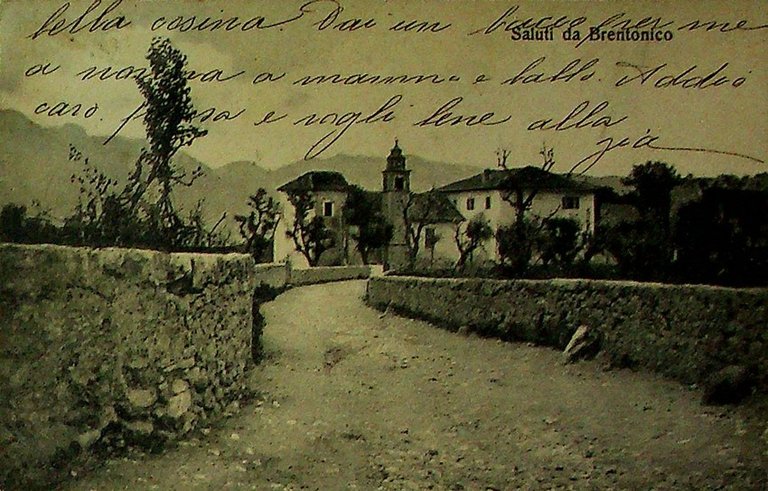 bella cosina. Dai un bacio per me
Saluti da Brentonico
a nonna a mamma e babbo. Addio
caro. pensa e vogli bene alla
zia